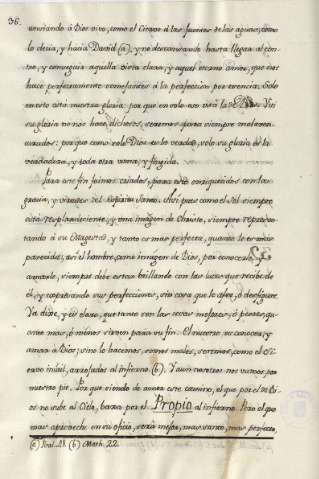 36.
á Dios vivo, como el Ciervo á las fuentes de las aguas, como
lo decia, y hacia David (a), y no descansando hasta llegar al
y conseguir aquella vista clara, y aquel eterno amor, que nos
hace perfectamente semejantes á la perfeccion por esencia. Solo
en esto está nuestra gloria, por que en solo eso está la Sin
su gloria no nos hace dichosos, seremos para siempre
por que como solo Dios es la verdad, solo su gloria es la
verdadera, y toda otra vana, y fingida.
Para ese fin fuimos criados, para enriquecidos con la
gracia, y virtudes del Espiritu Santo. Asi pues como el Sol siempre
está resplandeciente, y una imágen de Christo, siempre represen-
tando á su Magestad, y tanto es mas perfecta, quanto le es mas
parecida; así el hombre, como imágen de Dios, por conocerle, y
amarle, siempre debe estar brillando con las luces que recibe de
él, y copiando sus perfecciones, sin cosa que lo afee, ó desfigure.
Ya dixe, y es claro, que tanto son las cosas mejores, ó peores, qu-
anto mas, ó menos sirven para su fin. El nuestro, es conocer, y
amar á Dios; sino lo hacemos, somos malos, seremos, como el si-
ervo inútil, arrojados al infierno (b). Y aun nosotros nos vamos por
nuestro pie. Por que siendo de amor este camino, el que por el de Di-
os no sube al Cielo, baxa por el Propio al infierno. Pero el que
mas aproveche en su oficio, será mejor, mas santo, mas perfecto,
(a) Psal. 41. (b) Math. 22.